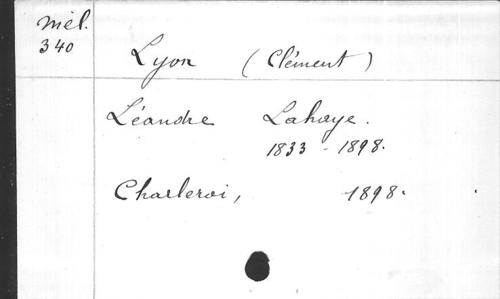 Mél.
340
Lyon (Clément)
Léandre Lahaye.
1833 - 1898.
Charleroi, 1898.